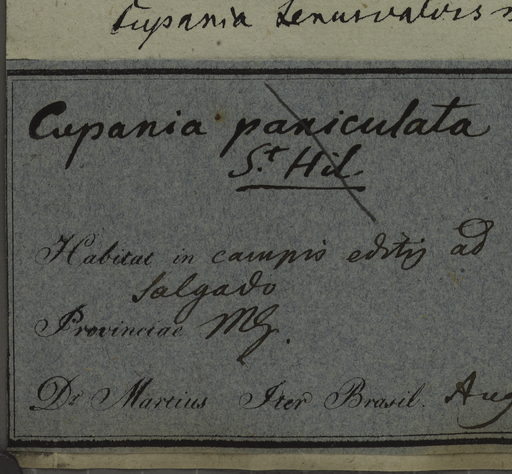 Cupania
Cupania paniculata
St Hil
Habitat in campis editis ad
Salgado
Provinciae MG.
Dr Martius Iter Brasil. Aug